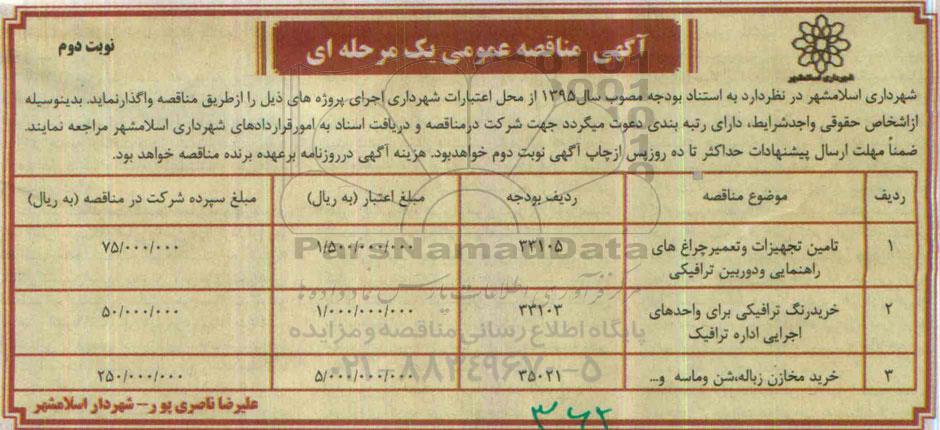 آگهی مناقصه عمومی یک مرحله ای
نوبت دوم
شهرداری اسلامشهر
شهرداری اسلامشهر در نظردارد به استناد بودجه مصوب سال ۱۳۹۵ از محل اعتبارات شهرداری اجرای پروژه های ذیل را ازطریق مناقصه واگذارنماید. بدینوسیله
ازاشخاص حقوقی واجدشرایط، دارای رتبه بندی دعوت میگردد جهت شرکت درمناقصه و دریافت اسناد به امورقراردادهای شهرداری اسلامشهر مراجعه نمایند.
ضمناً مهلت ارسال پیشنهادات حداکثر تا ده روزپس ازچاپ آگهی نوبت دوم خواهدبود. هزینه آگهی درروزنامه برعهده برنده مناقصه خواهد بود.
ردیف موضوع مناقصه ردیف بودجه مبلغ اعتبار (به ریال) مبلغ سپرده شرکت در مناقصه (به ریال)
۱ تامین تجهیزات وتعمیرچراغ های ۳۳۱۰۵ ۱/۵۰۰/۰۰۰/۰۰۰ ۷۵/۰۰۰/۰۰۰
راهنمایی ودوربین ترافیکی
۲ خریدرنگ ترافیکی برای واحدهای ۳۳۱۰۳ ۱/۰۰۰/۰۰۰/۰۰۰ ۵۰/۰۰۰/۰۰۰
اجرایی اداره ترافیک
۳ خرید مخازن زباله،شن وماسه و... ۳۵۰۲۱ ۵/۰۰۰/۰۰۰/۰۰۰ ۲۵۰/۰۰۰/۰۰۰
علیرضا ناصری پور– شهردار اسلامشهر
ParsNamadData
مرکز فرآوری اطلاعات پارس نماد داده ها
پایگاه اطلاع رسانی مناقصه و مزایده
۰۲۱-۸۸۳۴۹۶۷۰-۵